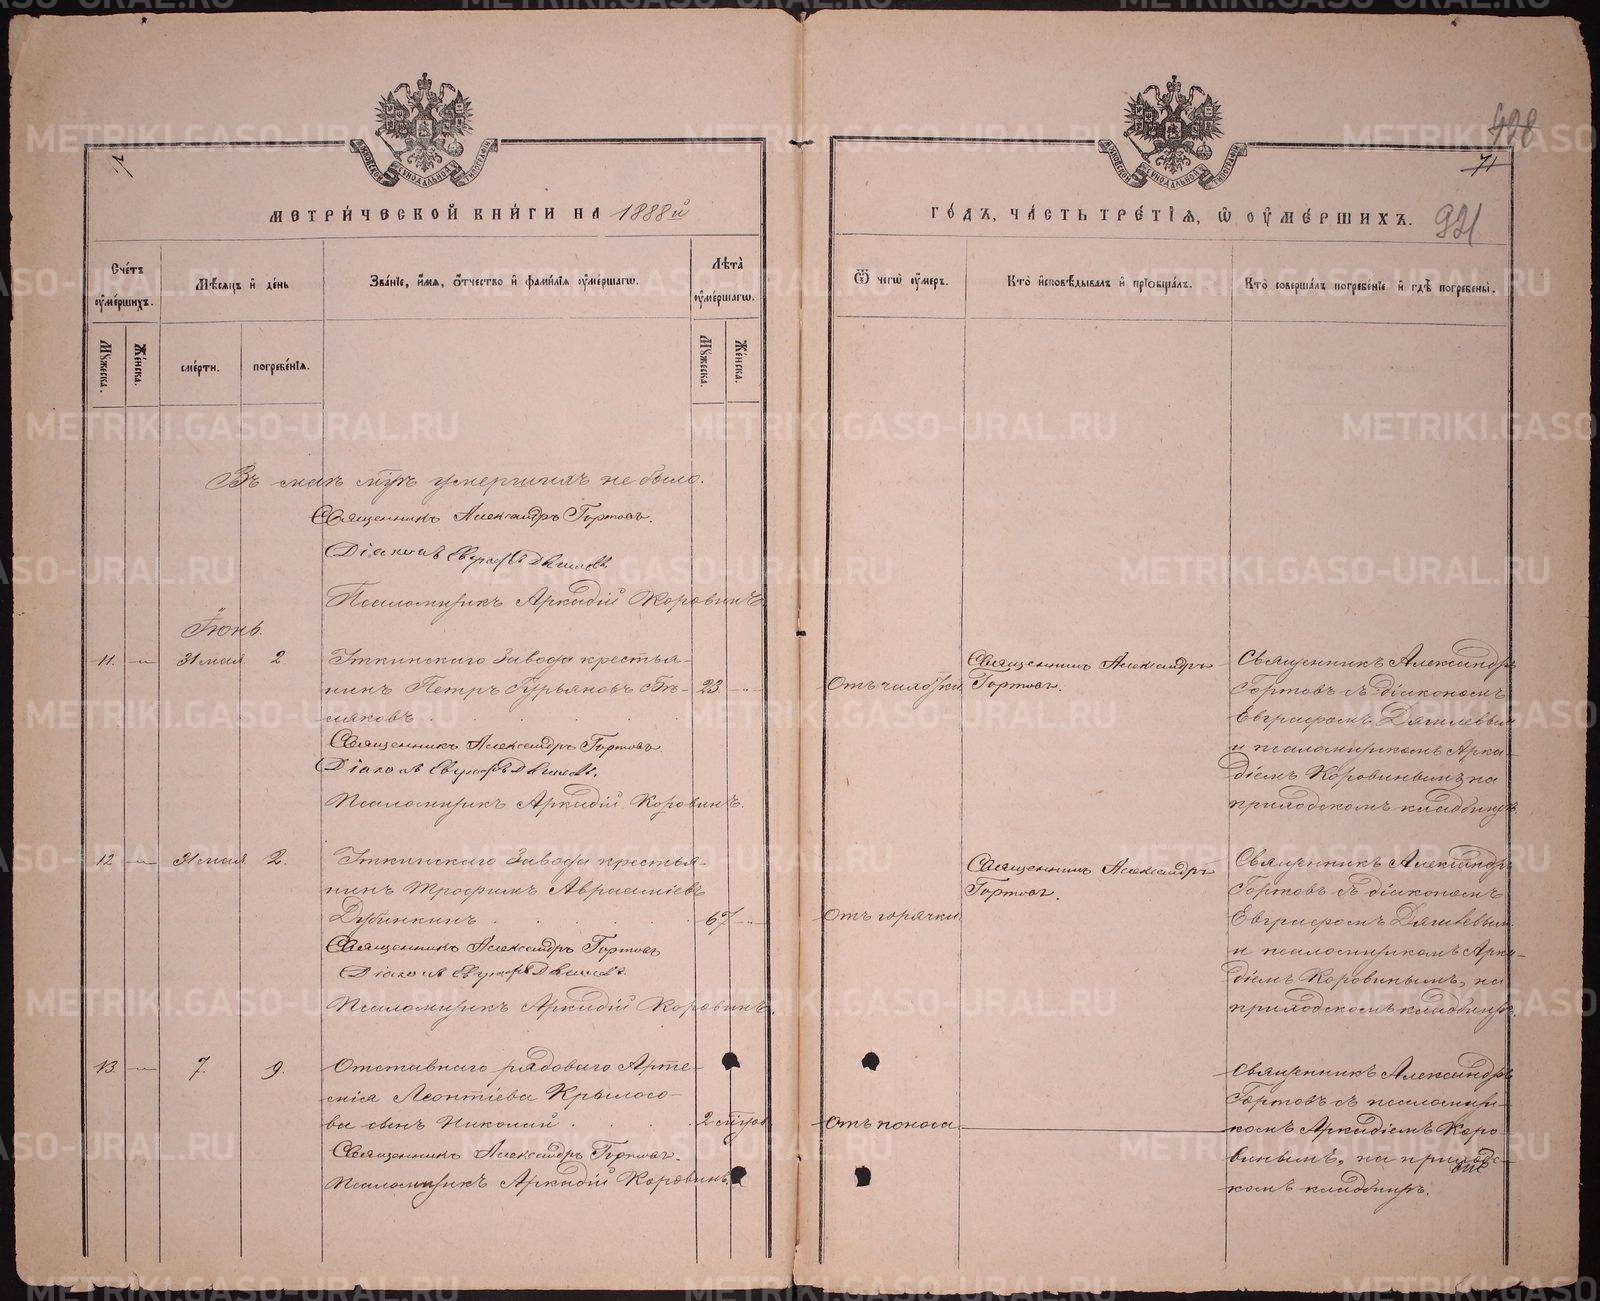 МЕТРИ́ЧЕСКОЙ КНИ́ГИ НА 1888й
Сче́тъ ᲂу҆ме́ршихъ.
Мѣ́сяцъ и҆ де́нь
Зва́нїе, и҆́мя, ѻ҆́тчество и҆ фами́лїя ᲂу҆ме́ршагѡ.
Лѣта̀ ᲂу҆ме́ршагѡ.
Му́жеска.
Же́нска.
сме́рти.
погребе́нїя.
Му́жеска.
Же́нска.
Въ маѣ мцѣ умершихъ не было.
Священникъ Александръ Гортовъ.
Діаконъ Евграфъ Дягилевъ
Псаломщикъ Аркадій Коровинъ.
Іюнь.
11. — 31 мая 2. Уткинскаго Завода крестья-
нинъ Петръ Гурьяновъ Бѣ- 23.
ляковъ
Священникъ Александръ Гортовъ
Діаконъ Евграфъ Дягилевъ.
Псаломщикъ Аркадій Коровинъ.
12 — 31 мая 2. Уткинскаго Завода крестья-
нинъ Трофимъ Аврааміевъ
Дубинкинъ 67
Священникъ Александръ Гортовъ
Діаконъ Евграфъ Дягилевъ.
Псаломщикъ Аркадій Коровинъ.
13. — 7. 9. Отставнаго рядоваго Арте-
Леонтіева Крылосо-
ва сынъ Николай 2
Священникъ Александръ Гортовъ.
Псаломщикъ Аркадій Коровинъ.
71
ГО́ДЪ, ЧА́СТЬ ТРЕ́ТІЯ, Ѡ҆ ОУ҆МЕ́РШИХЪ. 921
Ѿ чегѡ̀ ᲂу҆́меръ.
Кто̀ и҆сповѣ́дывалъ и҆ прїѻбща́лъ.
Кто̀ соверша́лъ погребе́нїе и҆ гдѣ̀ погребены̀.
Отъ чахотки.
Священникъ Александръ
Гортовъ.
Священникъ Александръ
Гортовъ съ діакономъ
Евграфомъ Дягилевымъ
и псаломщикомъ Арка-
діемъ Коровинымъ на
приходскомъ кладбищѣ.
Отъ горячки.
Священникъ Александръ
Гортовъ.
Священникъ Александръ
Гортовъ съ діакономъ
Евграфомъ Дягилевымъ
и псаломщикомъ Арка-
діемъ Коровинымъ, на
приходскомъ кладбищѣ.
Отъ поноса
Священникъ Александръ
Гортовъ съ псаломщи-
комъ Аркадіемъ Коро
винымъ, на приходс-
комъ кладбищѣ.
METRIKI.GASO-URAL.RU